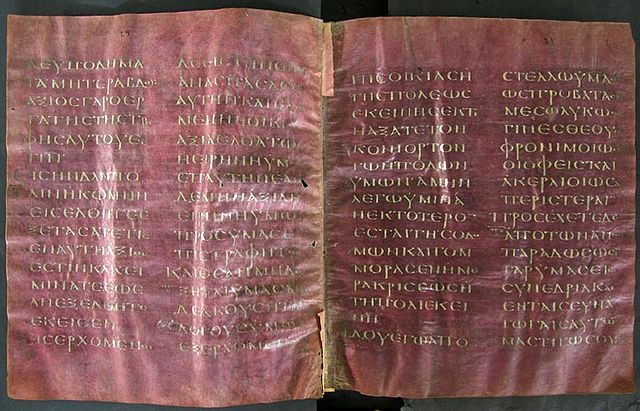 ΔΕΥΠΟΔΗΜΑ
ΤΑΜΗΤΕΡΑΒΔΟΥΣ
ΑΞΙΟΣΓΑΡΟΕΡ
ΓΑΤΗΣΤΗΣΤΡΟ
ΦΗΣΑΥΤΟΥΕΣ
ΤΙΝ
ΕΙΣΗΝΔΑΝΠΟ
ΛΙΝΗΚΩΜΗΝ
ΕΙΣΕΛΘΗΤΕΕ
ΞΕΤΑΣΑΤΕΤΙΣ
ΕΝΑΥΤΗΑΞΙΟΣ
ΕΣΤΙΝΚΑΚΕΙ
ΜΙΝΑΤΕΕΩΣ
ΑΝΕΞΕΛΘΗΤΕ
ΕΚΕΙΘΕΝ
ΕΙΣΕΡΧΟΜΕΝΟΙ
ΑΥΤΗΝΚΑΙΕΑΝ
ΜΕΝΗΟΙΚΙΑ
ΑΞΙΑΕΛΘΑΤΩ
ΗΕΙΡΗΝΗΥΜΩΝ
ΕΠΑΥΤΗΝΕΑΝ
ΔΕΜΗΗΑΞΙΑΗ
ΕΙΡΗΝΗΥΜΩΝ
ΠΡΟΣΥΜΑΣΕ
ΠΙΣΤΡΑΦΗΤΩ
ΚΑΙΟΣΕΑΝΜΗΔΕ
ΞΗΤΑΙΥΜΑΣΜΗ
ΔΕΑΚΟΥΣΗΤΟΥΣ
ΛΟΓΟΥΣΥΜΩΝ
ΕΞΕΡΧΟΜΕΝΟΙ
ΤΗΣΟΙΚΙΑΣΗ
ΤΗΣΠΟΛΕΩΣ
ΕΚΕΙΝΗΣΕΚΤΙ
ΝΑΞΑΤΕΤΟΝ
ΚΟΝΙΟΡΤΟΝ
ΤΩΝΠΟΔΩΝ
ΥΜΩΝΑΜΗΝ
ΛΕΓΩΥΜΙΝΑ
ΝΕΚΤΟΤΕΡΟΝ
ΕΣΤΑΙΓΗΣΟΔΟ
ΜΩΝΚΑΙΓΟΜ
ΜΟΡΑΣΕΝΗΜΕ
ΡΑΚΡΙΣΕΩΣΗ
ΤΗΠΟΛΙΕΚΕΙ
ΝΗ
ΙΔΟΥΕΓΩΑΠΟ
ΣΤΕΛΛΩΥΜΑΣ
ΩΣΠΡΟΒΑΤΑ
ΜΕΣΟΝΛΥΚΩΝ
ΓΙΝΕΣΘΕΟΥΝ
ΦΡΟΝΙΜΟΙΩΣ
ΟΙΟΦΕΙΣΚΑΙ
ΑΚΕΡΑΙΟΙΩΣ
ΠΕΡΙΣΤΕΡΑΙ
ΠΡΟΣΕΧΕΤΕΔΕ
ΑΠΟΤΩΝΑΝΩΝ
ΠΑΡΑΔΩΣΟΥΣΙ
ΓΑΡΥΜΑΣΕΙΣ
ΣΥΝΕΔΡΙΑΚΑΙ
ΕΝΤΑΙΣΣΥΝΑ
ΓΩΓΑΙΣΑΥΤΩΝ
ΜΑΣΤΙΓΩΣΟΥ